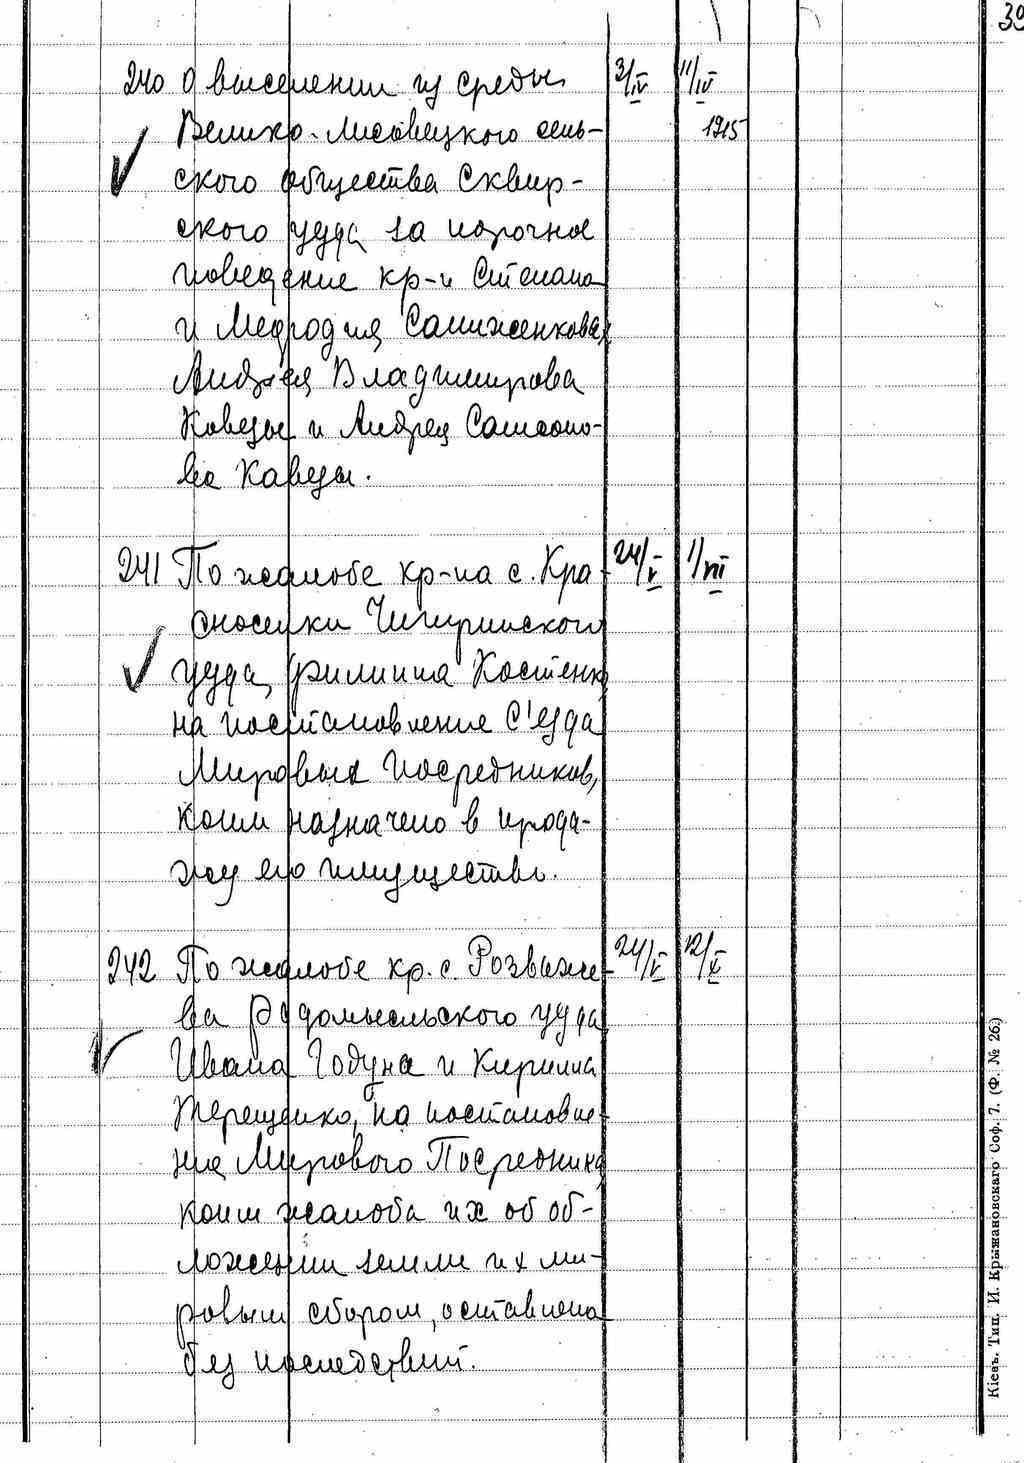 39
240 О выселении из среды 3/IV 11/IV
Велико-Лисовецкого сель- 1915
ского общества Сквир-
ского уезда за порочное
поведение кр-н Степана
и Мефодия Самиженковых
Андрея Владимирова
Коведы и Андрея Самсоно-
ва Каведы.
241 По жалобе кр-на с. Кра- 24/V 1/VIII
сноселки Чигиринского
уезда, Филиппа Костенко
на постановление С'езда
Мировых Посредников,
коим назначено в прода-
жу его имущество.
242 По жалобе кр. с. Розваже- 24/V 12/X
ва Радомысльского уезда
Ивана Годуна и Кирилла
Терещенко, на постановле-
ние Мирового Посредника
коим жалоба их об об-
ложении земли их ми-
ровым сбором, оставлена
без последствий.
Кіевъ. Тип. И. Крыжановскаго Соф. 7. (Ф. № 26.)